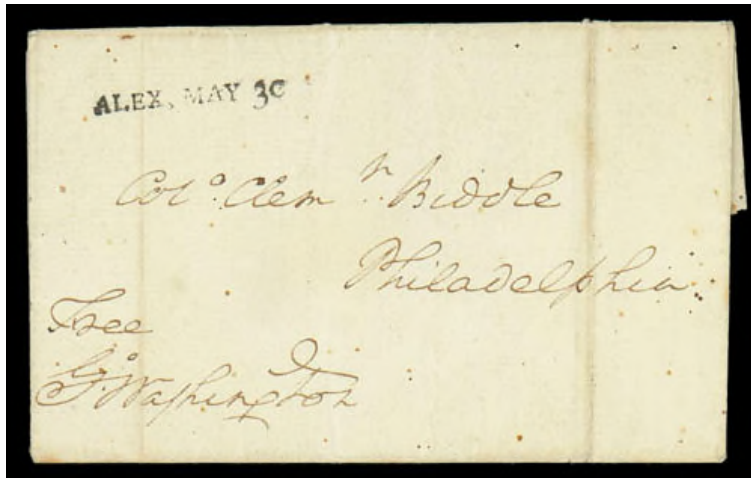 ALEX, MAY 30
Colo. Clemn. Biddle
Philadelphia
Free
Go. Washington